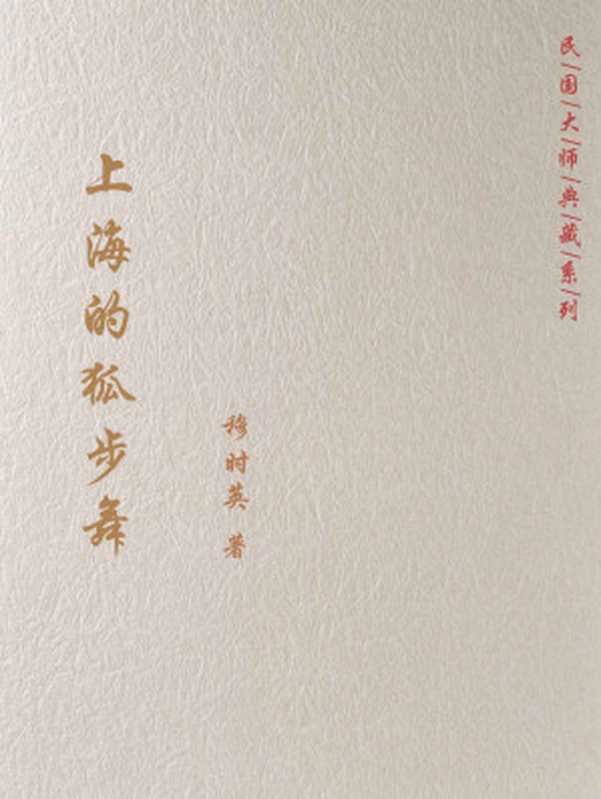 民国大师典藏系列
穆时英 著
上海的狐步舞